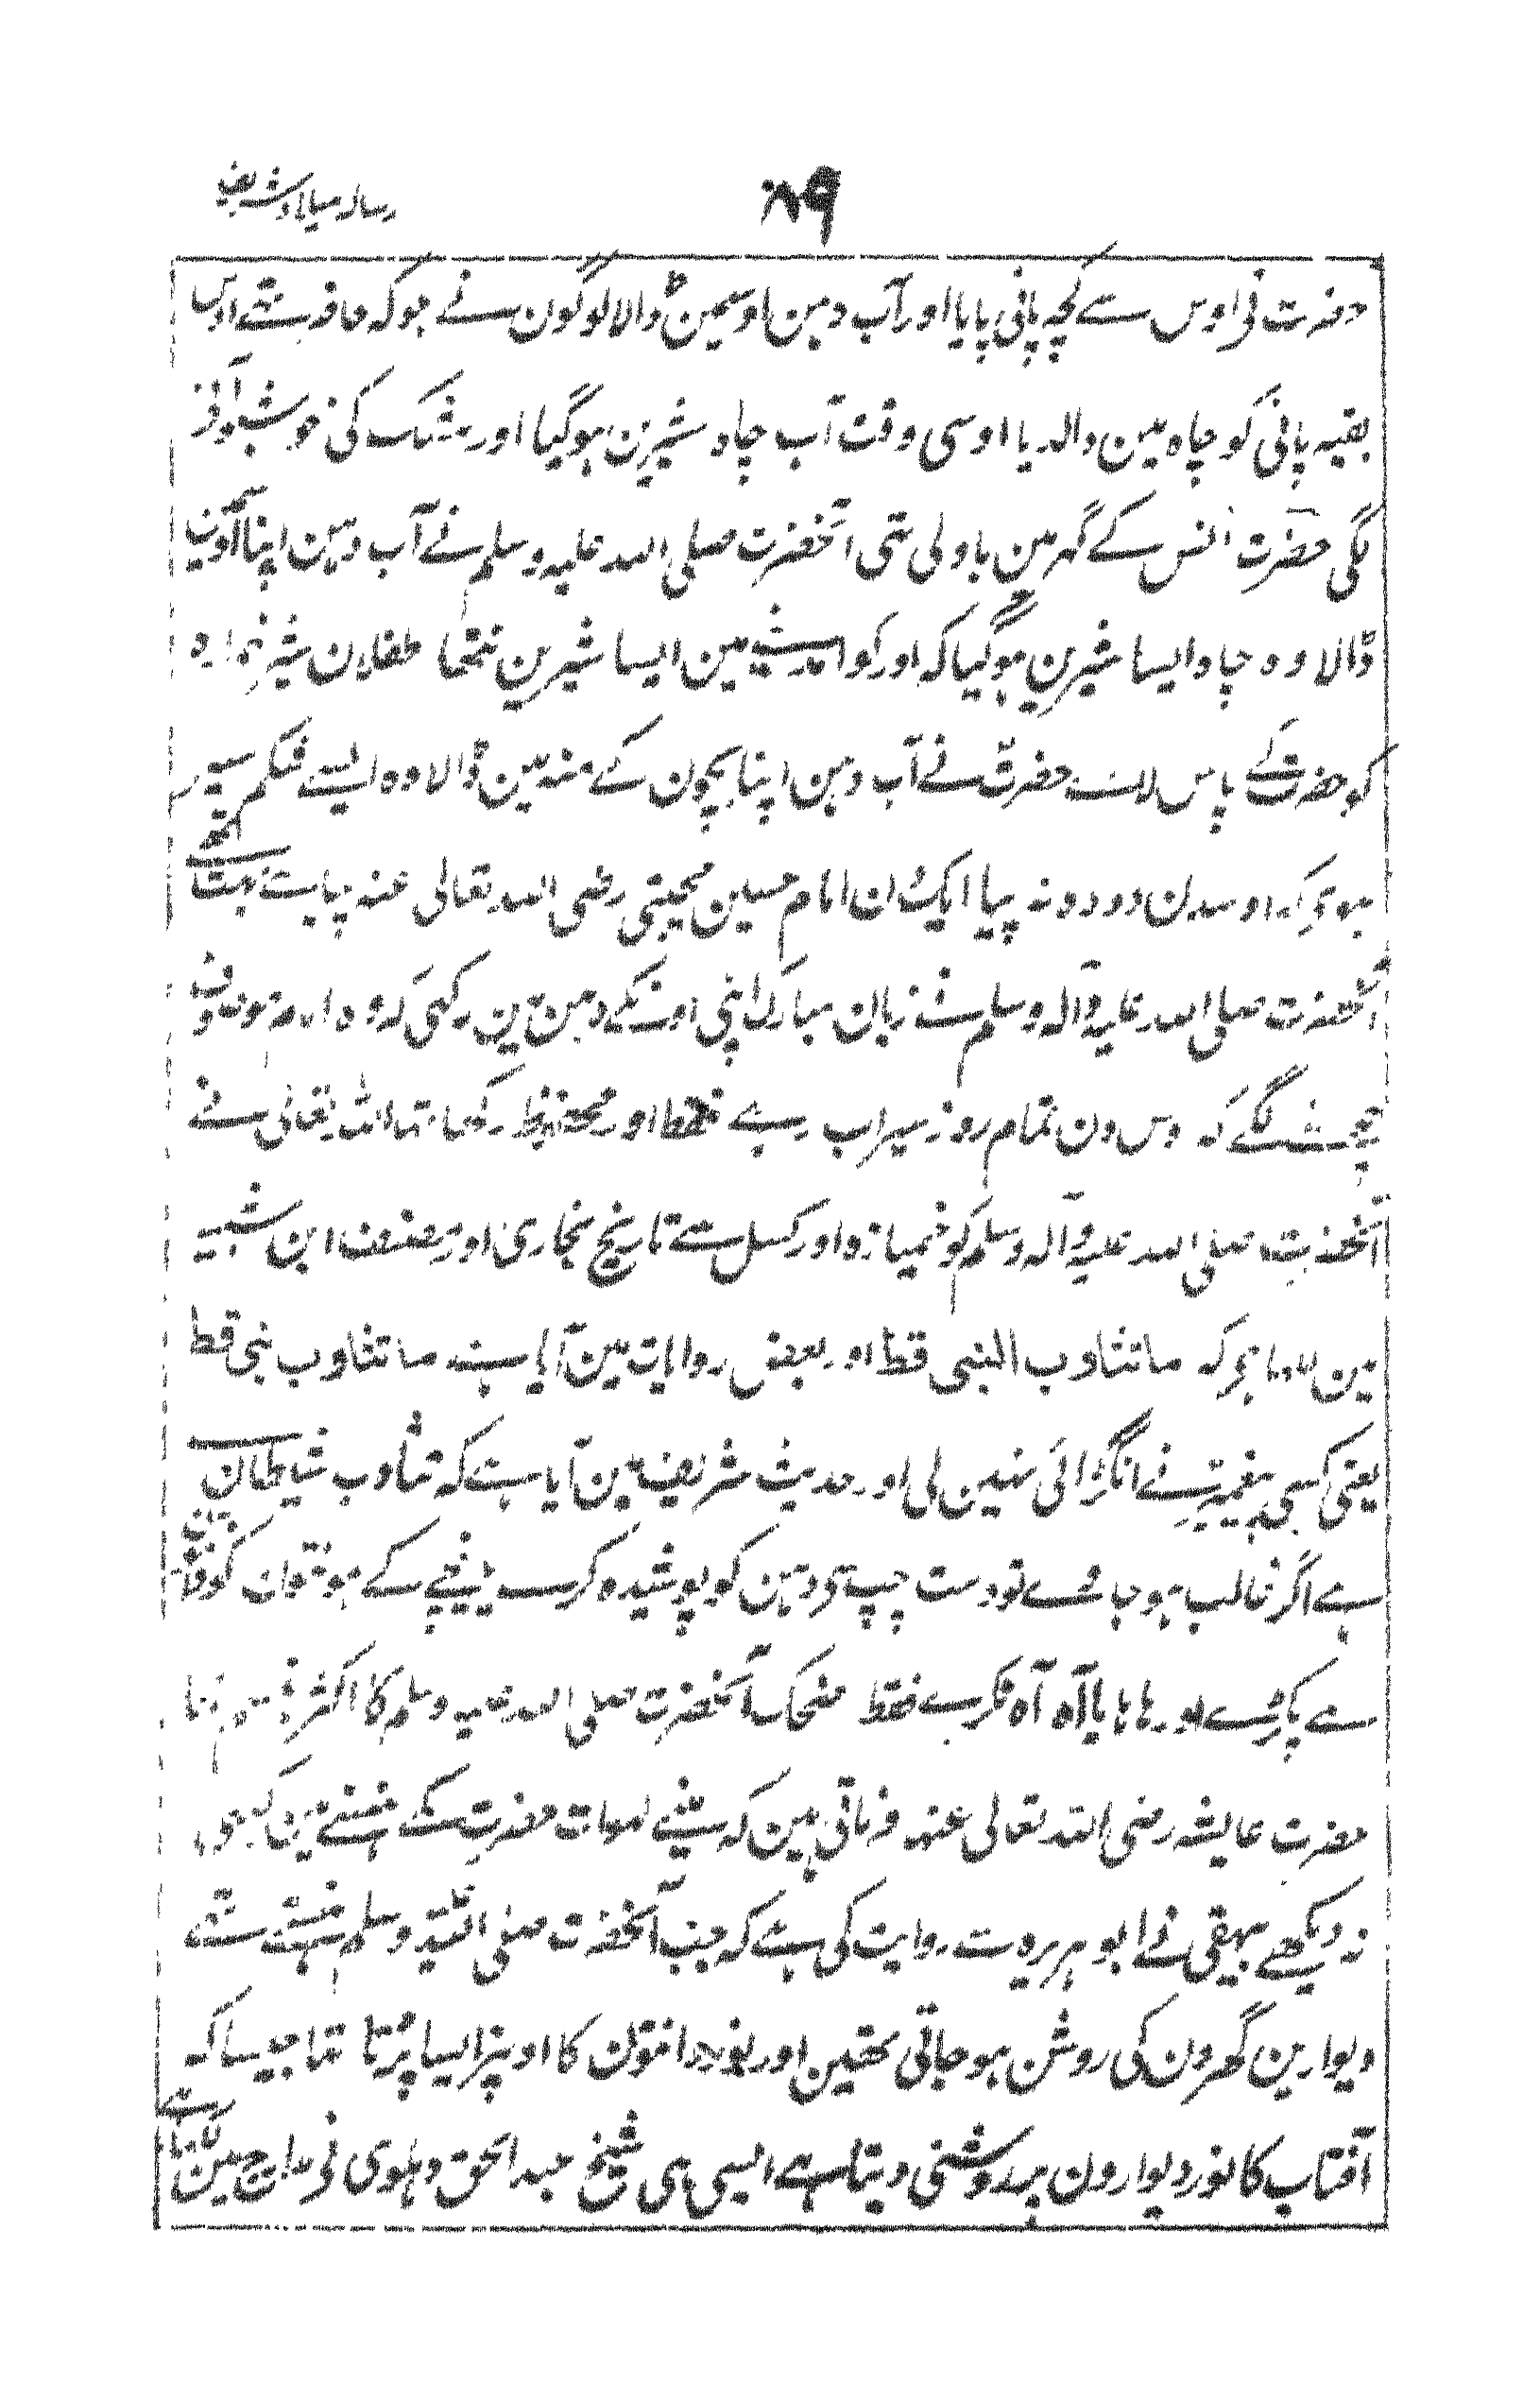 ۸۹
رسالہ میلاد شریف
حضرت نی اوس سے کچہ پانی پایا اور آب دہن اوسمین ڈالا لوگون نے جو کہ حاضر تھے اوس
بقیہ پانی کو چاہ مین والدیا اوسی وقت آب چاہ شیرین ہوگیا اور مشک کی خوشبو آنے
لگی حضرت انس کے گہر مین باولی تھی آنحضرت صلی اللہ علیہ وسلم نے آب دہن اپنا اوسمین
ڈالا وہ چاہ ایسا شیرین ہوگیا کہ اور کوا مدینے مین ایسا شیرین نتھا طفلان شیرخوارہ
کو حضرت کے پاس لائے حضرت نے آب دہن اپنا بچون کے منہ مین ڈالا وہ ایسے شکم سیر
ہوئے کہ اوسدن دودہ نہ پیا ایک دن امام حسین مجتبی رضی اللہ تعالی عنہ پیاسے بہت تھے
آنحضرت صلی اللہ علیہ وآلہ وسلم نے زبان مبارک اپنی اونکے دہن مین رکھی کہ وہ
چوسنے لگے کہ وس دن تمام روز سیراب رہے فقط اور محفوظ رکھا تہا اللہ تعالی نے
آنحضرت صلی اللہ علیہ وآلہ وسلم کو خمیازہ اور کسل سے تاریخ بخاری اور مصنف ابن شیبہ
مین لکہا ہر کہ ماتثاوب النبی قط اور بعض روایات مین آیا ہے ماتثاوب نبی قط
یعنی کسی پیغمبر نے انگڑائی نہین لی اور حدیث شریف مین آیا ہے کہ تثاوب شیطان
ہے اگر غالب ہو جائے تو دست چپ سے دہن کو پوشیدہ کرے یا نیچے کے ہونٹ کو
سے پکڑے اور ہا ہا یا آہ آہ نکرے فقط ضحک آنحضرت صلی اللہ علیہ وسلم کا اکثر تبسم تہا
حضرت عایشہ رضی اللہ تعالی عنہ فرماتی ہین کہ مینے لہوات حضرت کے ہنسنے مین کبہی
نہ دیکھے بیہقی نے ابو ہریرہ سے روایت کی ہے کہ جب آنحضرت صلی اللہ علیہ وسلم ہنستے تھے
دیوارین گھرون کی روشن ہو جاتی تھین اور نور دانتون کا اونپر ایسا پڑتا تہا جیسا کہ
آفتاب کا نور دیوارون پر روشنی دیتا ہے ایسی ہی شیخ عبد الحق دہلوی نے مدارج مین